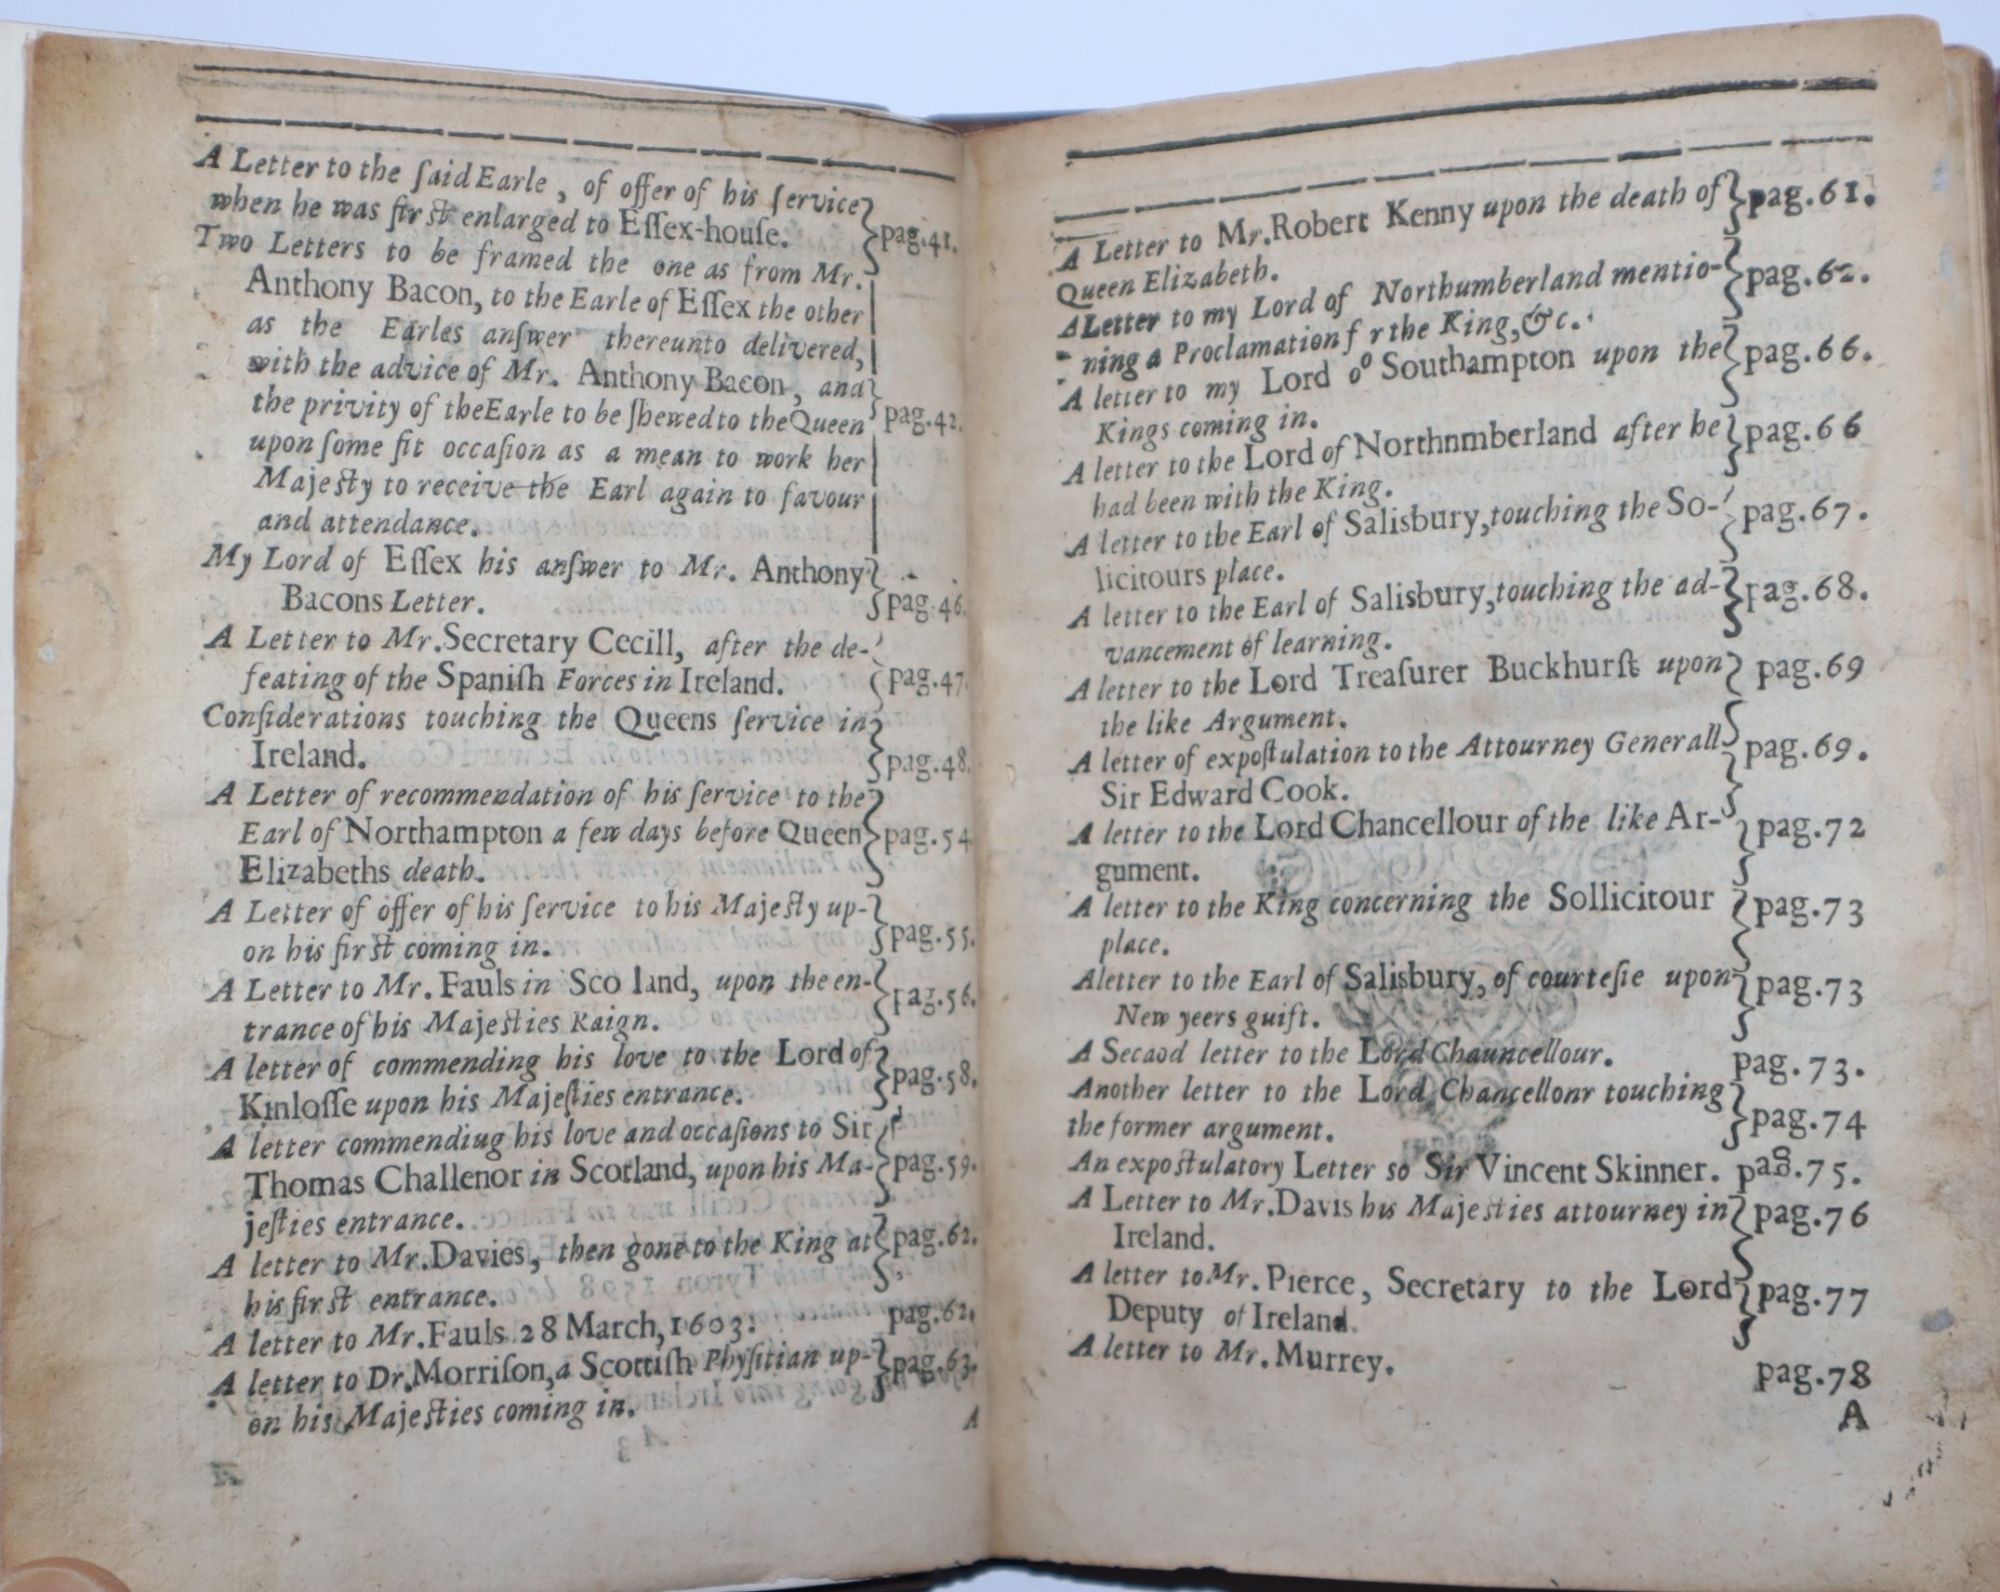 A Letter to the ſaid Earle, of offer of his ſervice
when he was firſt enlarged to Eſſex-houſe. pag.41.
Two Letters to be framed the one as from Mr.
Anthony Bacon, to the Earle of Eſſex the other
as the Earles anſwer thereunto delivered,
with the advice of Mr. Anthony Bacon, and
the privity of the Earle to be ſhewed to the Queen pag.42.
upon ſome fit occaſion as a mean to work her
Majeſty to receive the Earl again to favour
and attendance.
My Lord of Eſſex his anſwer to Mr. Anthony
Bacons Letter. pag.46.
A Letter to Mr. Secretary Cecill, after the de-
feating of the Spaniſh Forces in Ireland. pag.47.
Conſiderations touching the Queens ſervice in
Ireland. pag.48.
A Letter of recommendation of his ſervice to the
Earl of Northampton a few days before Queen pag.54.
Elizabeths death.
A Letter of offer of his ſervice to his Majeſty up-
on his firſt coming in. pag.55.
A Letter to Mr. Fauls in Sco land, upon the en- pag.56.
trance of his Majeſties Raign.
A letter of commending his love to the Lord of
Kinloſſe upon his Majeſties entrance. pag.58.
A letter commendiug his love and occaſions to Sir
Thomas Challenor in Scotland, upon his Ma- pag.59.
jeſties entrance.
A letter to Mr. Davies, then gone to the King at pag.62.
his firſt entrance.
A letter to Mr. Fauls 28 March, 1603. pag.62.
A letter to Dr. Morriſon, a Scottiſh Phyſitian up- pag.63.
on his Majeſties coming in.
A
A Letter to Mr. Robert Kenny upon the death of pag.61.
Queen Elizabeth.
A Letter to my Lord of Northumberland mentio- pag.62.
ning a Proclamation f r the King, &c.
A letter to my Lord oº Southampton upon the pag.66.
Kings coming in.
A letter to the Lord of Northnmberland after he pag.66
had been with the King.
A letter to the Earl of Salisbury, touching the So- pag.67.
licitours place.
A letter to the Earl of Salisbury, touching the ad- pag.68.
vancement of learning.
A letter to the Lord Treaſurer Buckhurſt upon pag.69
the like Argument.
A letter of expoſtulation to the Attourney Generall pag.69.
Sir Edward Cook.
A letter to the Lord Chancellour of the like Ar- pag.72
gument.
A letter to the King concerning the Sollicitour pag.73
place.
A letter to the Earl of Salisbury, of courteſie upon pag.73
New yeers guift.
A Secaod letter to the Lord Chauncellour. pag.73.
Another letter to the Lord Chancellonr touching
the former argument. pag.74
An expoſtulatory Letter so Sir Vincent Skinner. pag.75.
A Letter to Mr. Davis his Majeſties attourney in pag.76
Ireland.
A letter to Mr. Pierce, Secretary to the Lord pag.77
Deputy of Ireland.
A letter to Mr. Murrey. pag.78
A